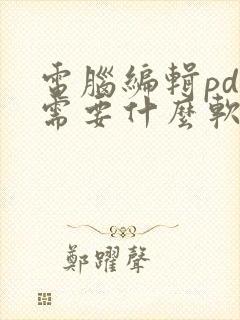 電腦編輯pd
需要什麼軟
鄭躍聲